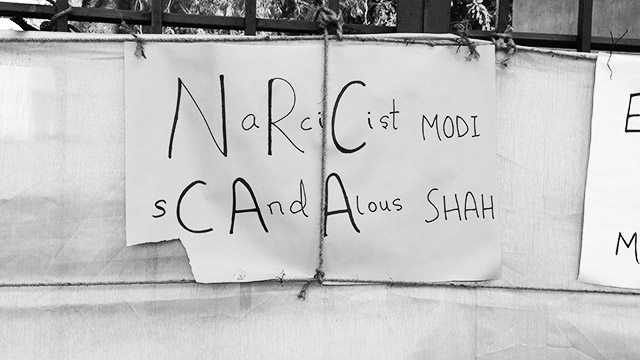 NaRciCist MODI
sCAndAlous SHAH
E
M